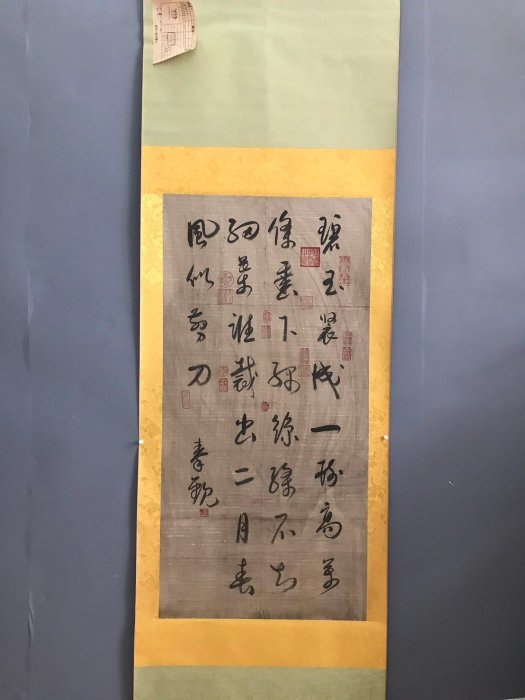 碧玉裝成一樹高萬
條垂下綠絲絛不知
細葉誰裁出二月春
風似剪刀
秦觀